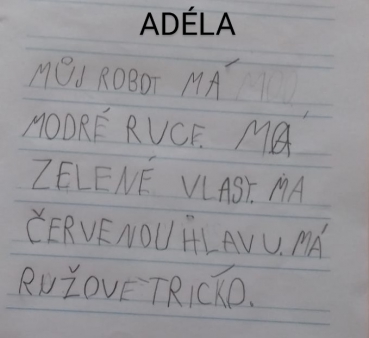 ADÉLA
MŮJ ROBOT MÁ MOD
MODRÉ RUCE. MÁ
ZELENÉ VLASY. MA
ČERVENOU HLAVU. MÁ
RUŽOVE TRIČKO.